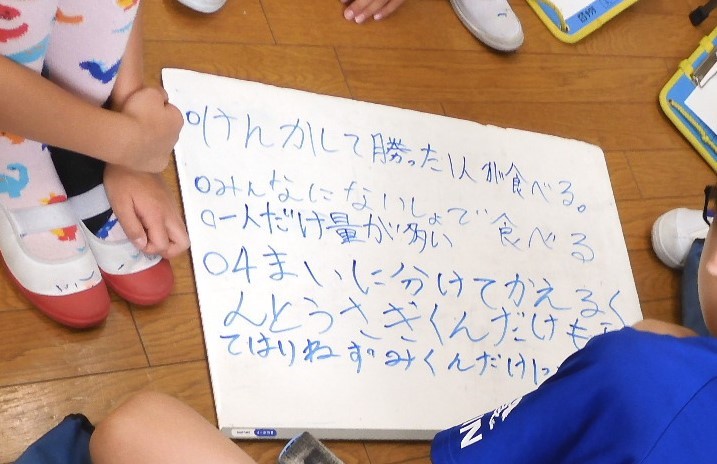 ○けんかして勝った1人が食べる。
○みんなにないしょで食べる
○一人だけ量が多い
○4まいに分けてかえるく
んとうさぎくんだけも
てはりねずみくんだけ